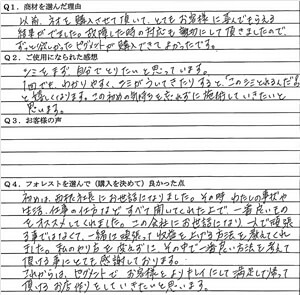 Q1. 商材を選んだ理由
以前、ネオも購入させて頂いて、とてもお客様に喜んでもらえる
結果がでました。故障した時の対応も親切にして頂きましたので、
ずっと欲しかったピグメントが購入できてよかったです。
Q2. ご使用になられた感想
シミをまず自分でとりたいと思っています。
1回でも、わかりやすく、シミがういてきたりすると、"このシミとれるんだ"
と嬉しくなります。この初めの気持ちを忘れずに施術していきたいと
思います。
Q3. お客様の声
Q4. フォレストを選んで(購入を決めて)良かった点
初めは、お世話になりました。その時わたしの事や
生活、仕事の仕方などすべて聞いてくれた上で、一番良いもの
をオススメしてくれました。この会社にお世話になり、一人で頑張
るまではなくて、一緒に頑張って収益を上げる方法を教えてくれ
ました。私のやり方を変えずに、その中で一番良い方法を考えて
頂ける事にとても感謝しております。
これからは、ピグメントで、お客様をよりキレイにして満足して帰って
頂けるお店作りをしていきたいと思います。